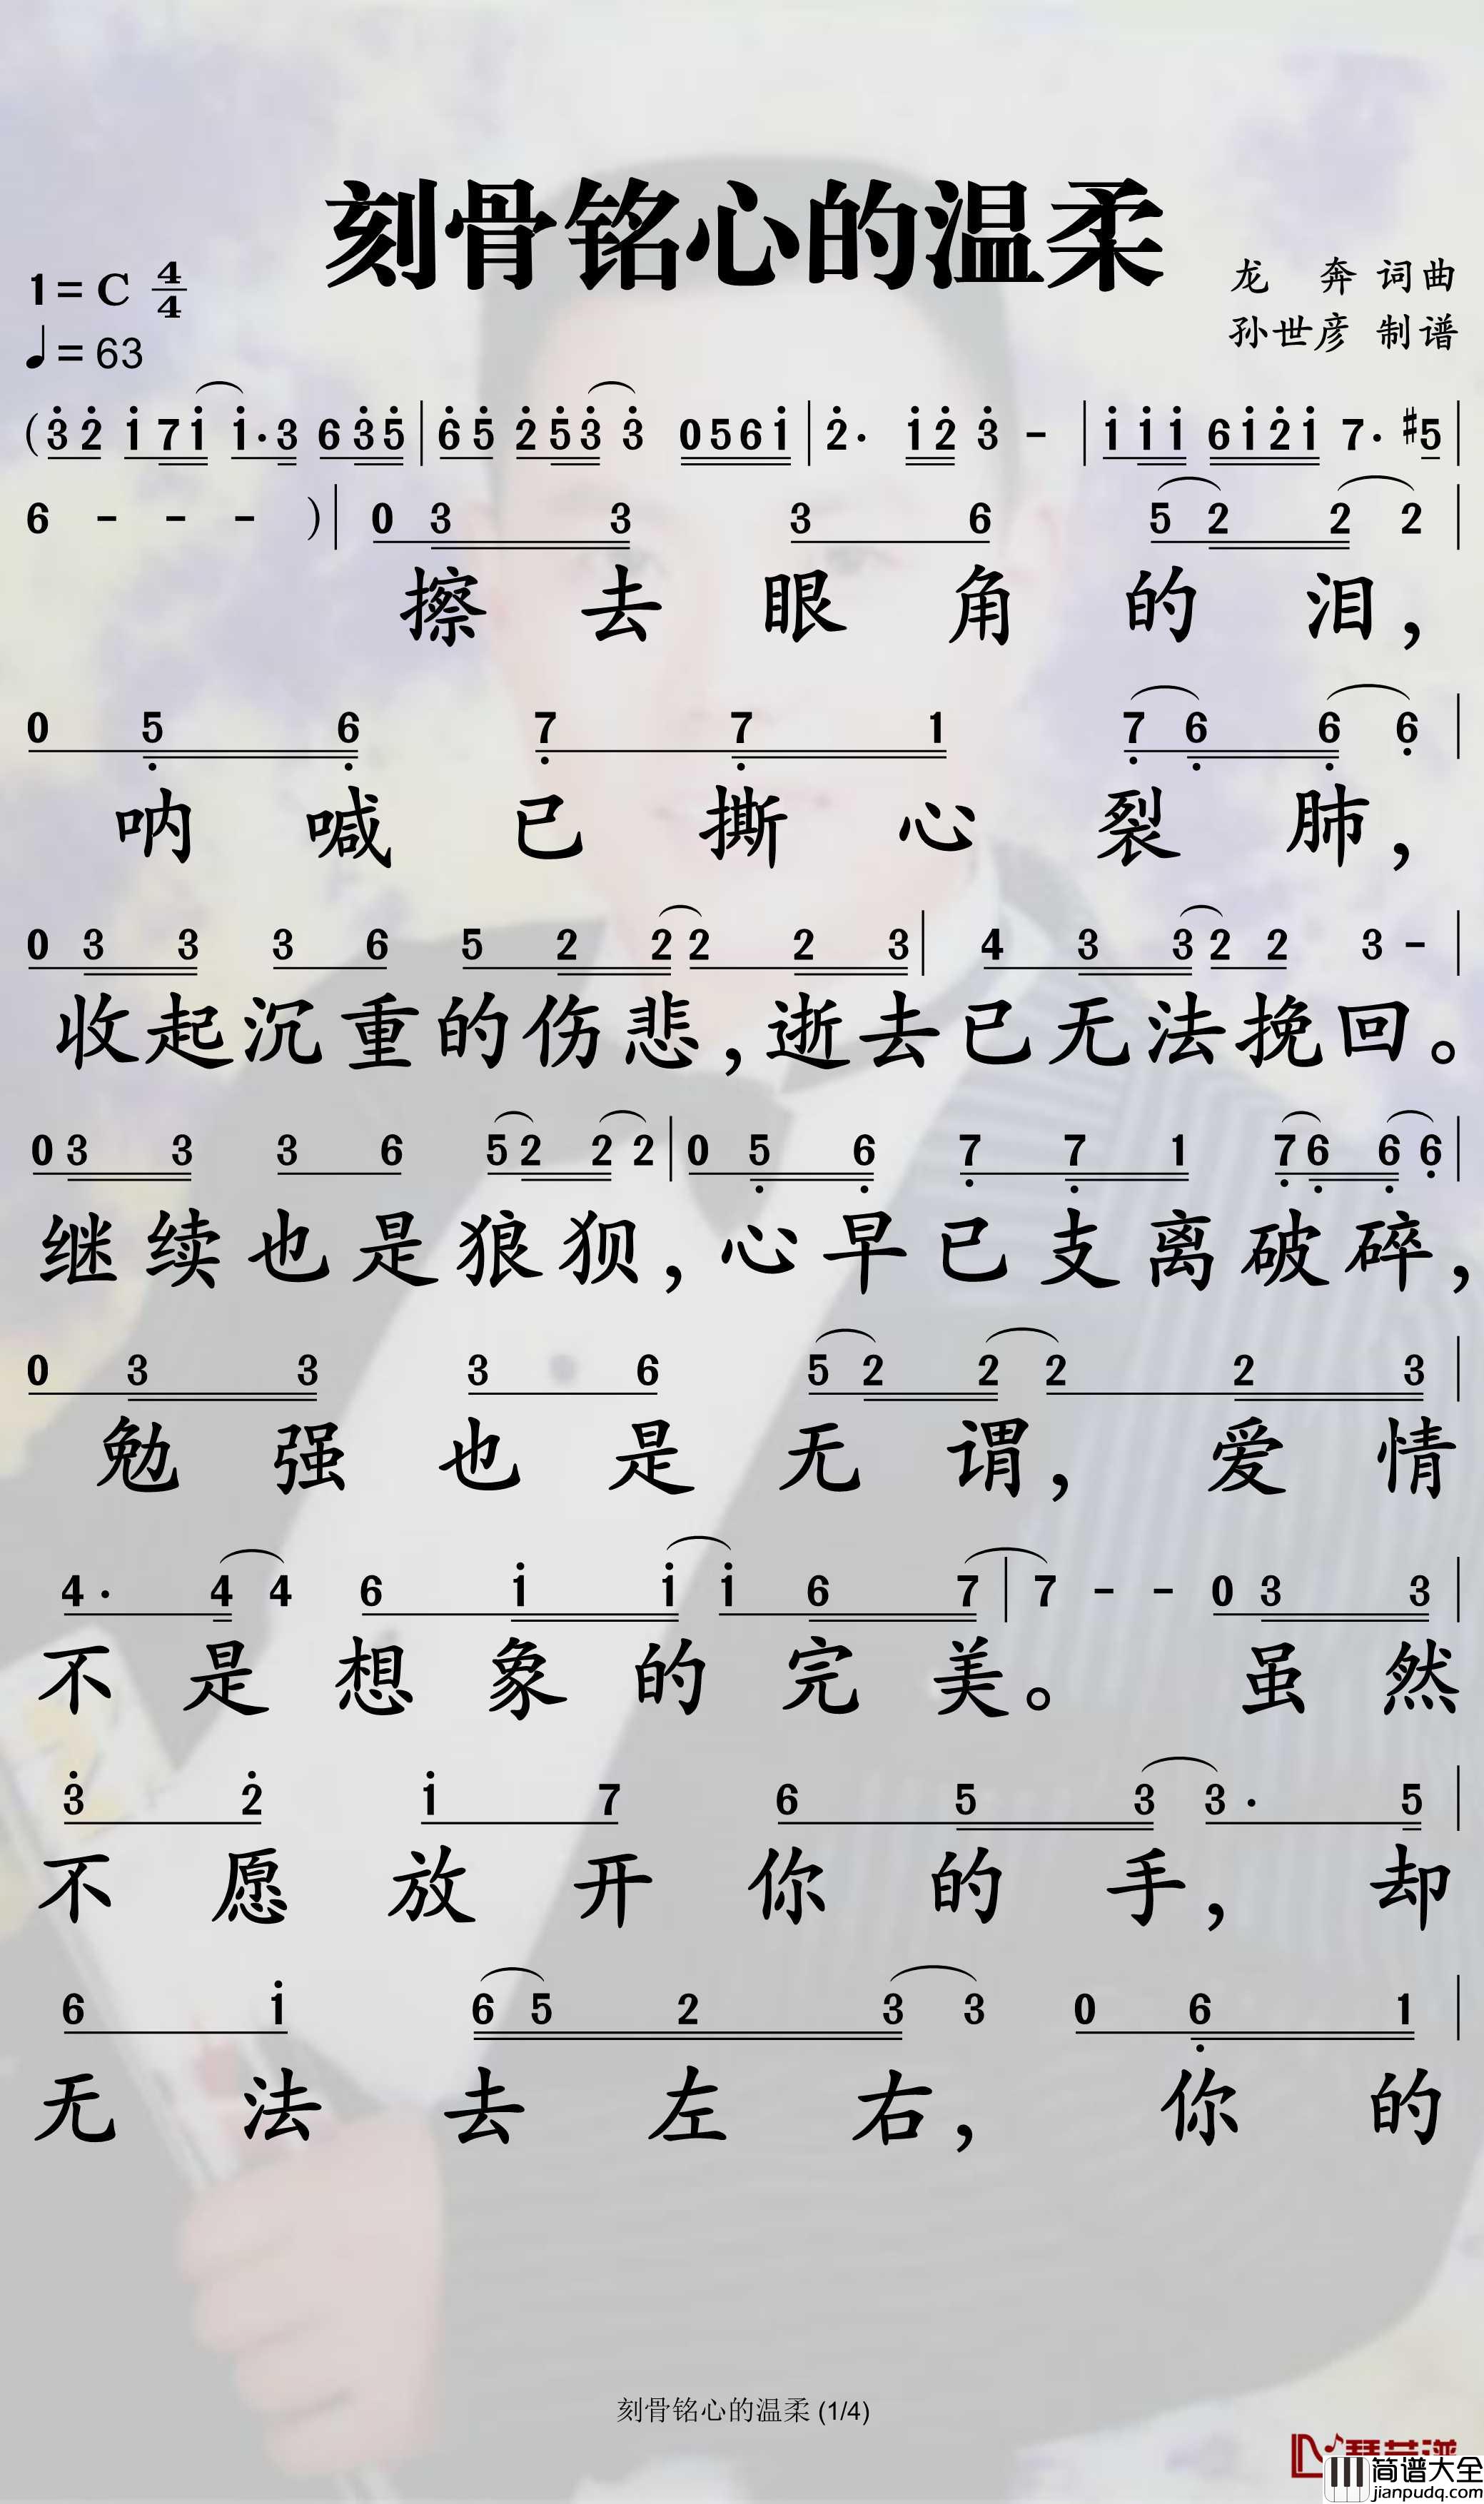 刻骨铭心的温柔
1=C 4/4
♩=63
龙 奔 词曲
孙世彦 制谱
(3̇ 2̇ 1̇ 7 1̇ 1̇· 3 6 3̇ 5̇ | 6̇ 5̇ 2̇ 5̇ 3̇ 3̇ 0 5 6 1̇ | 2̇· 1̇ 2̇ 3̇ - | 1̇ 1̇ 1̇ 6 1̇ 2̇ 1̇ 7· #5 |
6 - - - ) | 0 3 3 3 6 5 2 2 2 |
擦去眼角的泪，
0 5̣ 6̣ 7̣ 7̣ 1 7̣ 6̣ 6̣ 6̣ |
呐喊已撕心裂肺，
0 3 3 3 6 5 2 2 2 2 3 | 4 3 3 2 2 3 - |
收起沉重的伤悲，逝去已无法挽回。
0 3 3 3 6 5 2 2 2 | 0 5̣ 6̣ 7̣ 7̣ 1 7̣ 6̣ 6̣ 6̣ |
继续也是狼狈，心早已支离破碎，
0 3 3 3 6 5 2 2 2 2 3 |
勉强也是无谓，爱情
4· 4 4 6 1̇ 1̇ 1̇ 6 7 | 7 - - 0 3 3 |
不是想象的完美。虽然
3̇ 2̇ 1̇ 7 6 5 3 3· 5 |
不愿放开你的手，却
6 1̇ 6 5 2 3 3 0 6̣ 1 |
无法去左右，你的
刻骨铭心的温柔 (1/4)
简谱大全
jianpudq.com